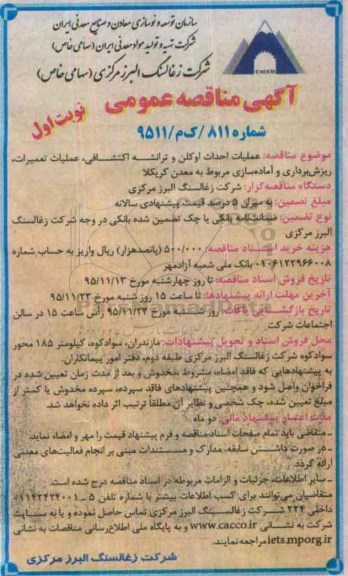 سازمان توسعه و نوسازی معادن و صنایع معدنی ایران
شرکت تهیه و تولید مواد معدنی ایران (سهامی خاص)
شرکت زغالسنگ البرز مرکزی (سهامی خاص)
CACCO
آگهی مناقصه عمومی
نوبت اول
شماره ۸۱۱/ک‌م/۹۵۱۱
موضوع مناقصه: عملیات احداث اوکلن و ترانشه اکتشافی، عملیات تعمیرات،
ریزش‌برداری و آماده‌سازی مربوط به معدن کریکلا
دستگاه مناقصه‌گزار: شرکت زغالسنگ البرز مرکزی
مبلغ تضمین: به میزان ۵ درصد قیمت پیشنهادی سالانه
نوع تضمین: ضمانتنامه بانکی یا چک تضمین شده بانکی در وجه شرکت زغالسنگ
البرز مرکزی
هزینه خرید اسناد مناقصه: ۵۰۰/۰۰۰ (پانصدهزار) ریال واریز به حساب شماره
۰۱۰۶۱۲۲۹۶۶۰۰۸ بانک ملی شعبه آزادمهر
تاریخ فروش اسناد مناقصه: تا روز چهارشنبه مورخ ۹۵/۱۱/۱۳
آخرین مهلت ارائه پیشنهادها: تا ساعت ۱۵ روز شنبه مورخ ۹۵/۱۱/۲۳
تاریخ بازگشایی پاکات: روز یکشنبه مورخ ۹۵/۱۱/۲۴ رأس ساعت ۱۵ در سالن
اجتماعات شرکت
محل فروش اسناد و تحویل پیشنهادات: مازندران، سوادکوه، کیلومتر ۱۸۵ محور
سوادکوه شرکت زغالسنگ البرز مرکزی طبقه دوم، دفتر امور پیمانکاران.
به پیشنهادهایی که فاقد امضاء، مشروط، مخدوش و بعد از مدت زمان تعیین شده در
فراخوان واصل شود و همچنین پیشنهادهای فاقد سپرده، سپرده مخدوش یا کمتر از
مبلغ تعیین شده، چک شخصی و نظایر آن مطلقاً ترتیب اثر داده نخواهد شد.
مدت اعتبار پیشنهاد مالی: دو ماه
ـ متقاضی باید تمام صفحات اسناد مناقصه و فرم پیشنهاد قیمت را مهر و امضاء نماید.
ـ در صورت داشتن سابقه، مدارک و مستندات مبنی بر انجام فعالیت‌های معدنی
ارائه گردد.
ـ سایر اطلاعات، جزئیات و الزامات مربوطه در اسناد مناقصه درج شده است.
متقاضیان می‌توانند برای کسب اطلاعات بیشتر با شماره تلفن
داخلی ۲۲۴ شرکت زغالسنگ البرز مرکزی تماس حاصل نموده و یا به سایت
شرکت به نشانی www.cacco.ir و به پایگاه ملی اطلاع‌رسانی مناقصات به نشانی
iets.mporg.ir مراجعه نمایند.
شرکت زغالسنگ البرز مرکزی